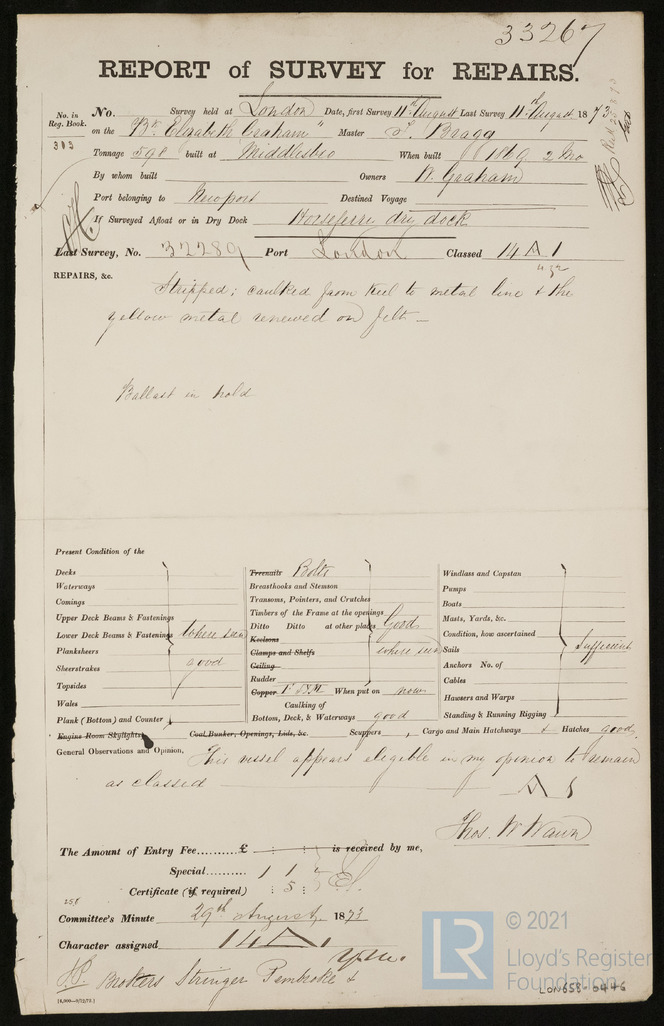 33267
REPORT of SURVEY for REPAIRS.
No. in Reg. Book. 303
No. Survey held at London Date, first Survey 11th August Last Survey 11th August 1873
on the Bk. "Elizabeth Graham" Master J. Bragg
Tonnage 598 built at Middlesbro When built 1869 2 Mo
By whom built Owners W. Graham
Port belonging to Newport Destined Voyage
If Surveyed Afloat or in Dry Dock Horseferry dry dock
Last Survey, No. 32289 Port London Classed 14 A 1
REPAIRS, &c.
Stripped; caulked from keel to metal line & the
yellow metal renewed on felt —
Ballast in hold
Present Condition of the
Decks
Waterways
Comings
Upper Deck Beams & Fastenings
Lower Deck Beams & Fastenings where seen
Planksheers
Sheerstrakes good
Topsides
Wales
Plank (Bottom) and Counter
Engine Room Skylights
Treenails Bolts
Breasthooks and Stemson
Transoms, Pointers, and Crutches
Timbers of the Frame at the openings
Ditto Ditto at other places Good
Keelsons
Clamps and Shelfs where seen
Ceiling
Rudder
Copper F & YM When put on now
Caulking of
Bottom, Deck, & Waterways good
Windlass and Capstan
Pumps
Boats
Masts, Yards, &c.
Condition, how ascertained
Sails Sufficient
Anchors No. of
Cables
Hawsers and Warps
Standing & Running Rigging
Coal Bunker, Openings, Lids, &c. Scuppers, Cargo and Main Hatchways & Hatches good
General Observations and Opinion, This vessel appears eligible in my opinion to remain
as classed A 1
Thos. W Wawn
The Amount of Entry Fee £ : : is received by me,
Special 1 1
Certificate (if required) : 5 :
Committee's Minute 29th August 1873
Character assigned 14 A 1
YM
Brothers Stringer Pembroke &
© 2021
LR
Lloyd's Register
Foundation
LON658-0446